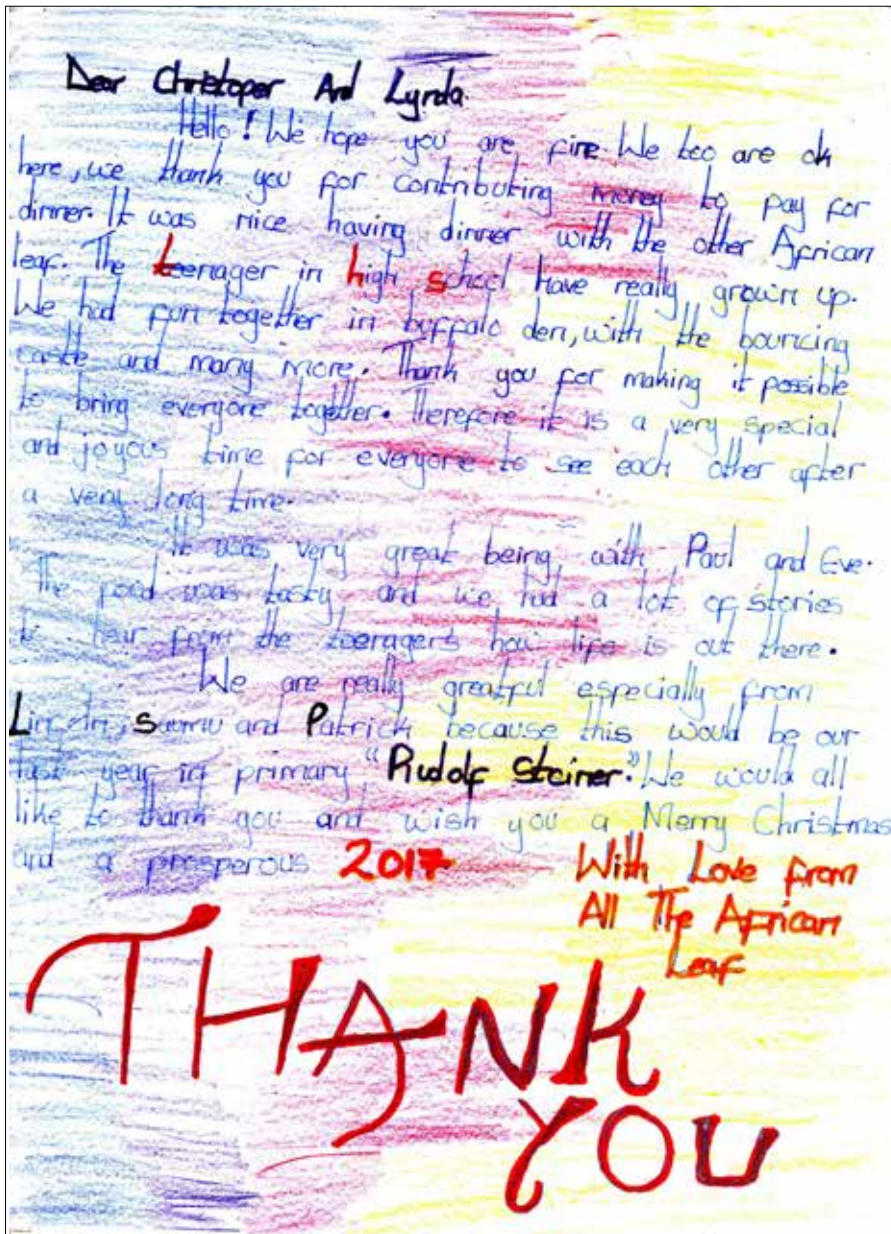 Dear Christoper And Lynda.
Hello! We hope you are fine. We too are ok
here, we thank you for contributing money to pay for
dinner. It was nice having dinner with the other African
leaf. The teenager in high school have really grown up.
We had fun together in buffalo den, with the bouncing
castle and many more. Thank you for making it possible
to bring everyone together. Therefore it is a very special
and joyous time for everyone to see each other after
a very long time.
It was very great being with Paul and Eve.
The food was tasty and we had a lot of stories
to hear from the teenagers how life is out there.
We are really greatful especially from
Lincoln, and Patrick because this would be our
last year in primary "Rudolf Steiner." We would all
like to thank you and wish you a Merry Christmas
and a prosperous 2017
With Love from
All The African
Leaf
THANK
YOU